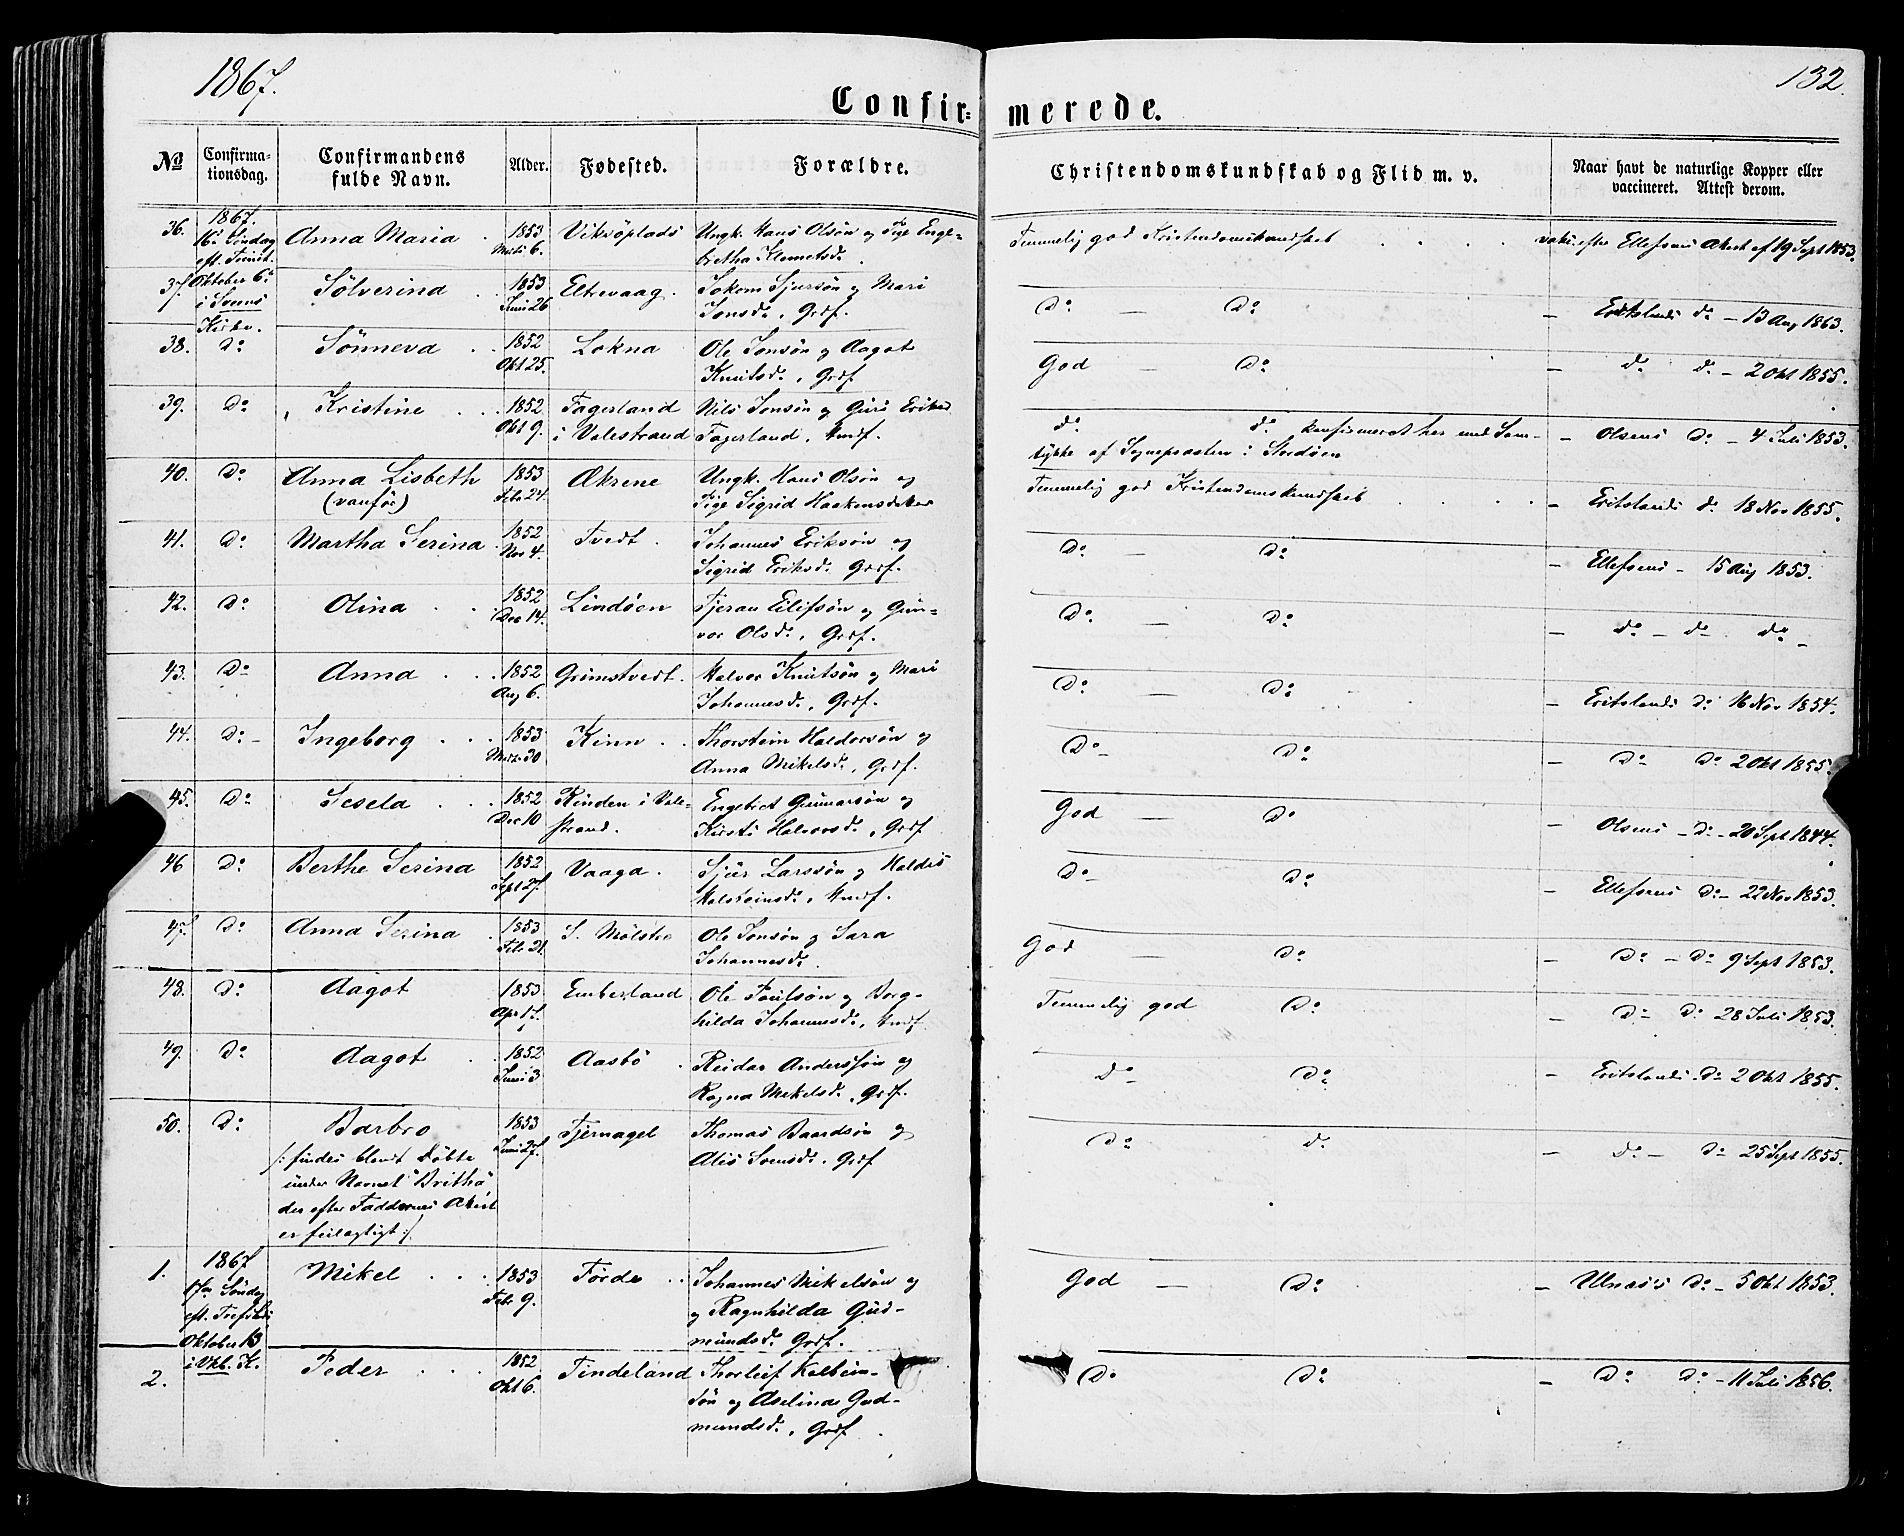 1867.
132.
Confir=merede.
No
Confirma-
tionsdag.
Confirmandens
fulde Navn.
Alder.
Fødested.
Forældre.
Christendomskundskab og Flid m. v.
Naar havt de naturlige Kopper eller
vaccineret. Attest derom.
36. 1867. 16de Søndag eft. Trinit. Oktober 6te i Sveens Kirke. Anna Maria 1853 6. Viksöplads Ungk. Hans Olsön og Pige Enge-
bretha Klemetsdr.
Temmelig god Kristendomskundskab vakc. efter Ellefsens Atest af 19 Sept 1853.
37. Sölverina 1853 Juni 26 Eltrevaag. Jokom Sjursön og Mari
Jonsdr., Grdf.
Do Do — Eritslands do — 13 Aug 1863.
38. Do Sönneva 1852 Okt 25. Lokna Ole Jonsön og Aagot
Knutsdr., Grdf.
God — Do — do do — 2 Okt 1855.
39. Do Kristine 1852 Okt 9. Fagerland
i Valestrand
Nils Jonsön og Guri Eriksd
Fagerland, Hmdf.
do do konfirmeret her med Sam-
tykke af Sognepresten i Stordöen
— Olsens Do — 4 Juli 1853.
40. Do Anna Lisbeth
(vanför)
1853 Febr 24. Økrene Ungk. Hans Olsön og
Pige Sigrid Haakensdatter
Temmelig god Kristendomskundskab — Eritslands do 18 Nov 1855.
41. Do Martha Serina 1852 Nov 4. Tvedt Johannes Eriksön og
Sigrid Eriksdr. Grdf.
Do — Do — Ellefsens — 15 Aug 1853.
42. Do Olina 1852 Dec 14. Lindöen Tjeran Eilifsön og Gun-
vor Olsdr., Grdf.
Do — Do — do — do do —
43. Do Anna 1852 Aug 6. Grimstvedt. Halvor Knutsön og Mari
Johannesdr., Grdf.
Do — Do — Eritslands do 16 Nov 1854.
44. Do — Ingeborg 1853 30 Kinn Thorstein Haldorsön og
Anna Mikelsdr., Grdf.
Do — Do — Do do 2 Okt 1855.
45. Do Sesela 1852 Dec 10 Rinden i Vale-
strand.
Engebret Gunnarsön og
Kirsti Halvorsdr., Grdf
God — Do — Olsens — do — 20 Sept 1844.
46 Do Berthe Serina 1852 Sept 27 Vaaga. Sjur Larssön og Haldis
Halsteinsdr., Hmdf.
Do — Do — Ellefsens do — 22 Nov 1853.
47. Do Anna Serina 1853 Febr 21. S. Mölstre Ole Jonsön og Sara
Johannesdr.
God — Do — Do — do 9 Sept 1853.
48. Do Aagot 1853 Apr 17. Emberland Ole Poulsön og Borg-
hilda Johannesdr., Hmdf.
Temmelig god Do — Do — do 28 Juli 1853.
49. Do Aagot 1852 Juni 3 Aasbö Reidar Anderssön og
Ragna Mikelsdr., Grdf.
Do — Do — Eritslands do 2 Okt 1855.
50. Do Barbro
/: findes blandt Döbte
under Navnet "Britha"
der efter Faddernes Atest
er feilagtigt :/
1853 Juni 27. Tjernagel Thomas Baardsön og
Alis Svensdr. Grdf
Do do — Do — do 25 Sept 1855.
1. 1867 17de Söndag eft. Trefoldh. Oktober 13 i Vkb. K. Mikel 1853 Febr 9. Förde Johannes Mikelsön og
og Ragnhilda Gud-
mundsdr. Grdf.
God — Do — Ulnæs's do — 5 Okt 1853.
2. Peder 1852 Okt 6. Tindeland Thorleif Kolbein-
sön og Aselina Gud-
mundsdr., Grdf.
Do Do — Do do — 11 Juli 1856.